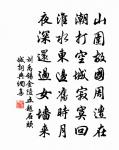 山圍故國周遭在
潮打空城寂寞回
淮水東邊舊時月
夜深還過女墻來
劉禹錫金陵五題石頭
城詞典網書